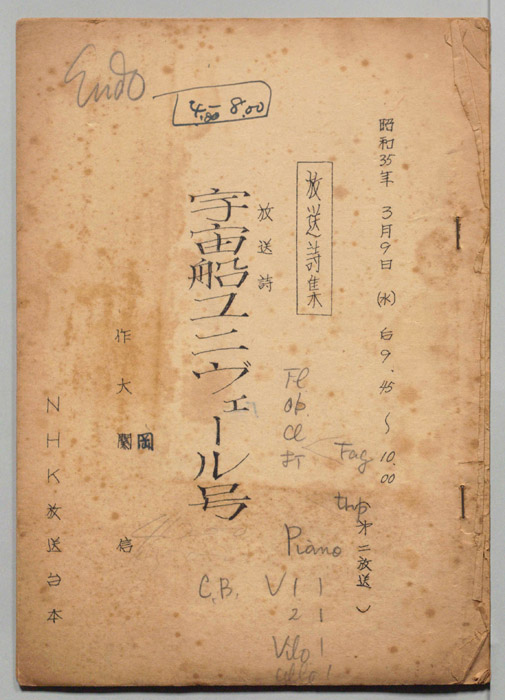 Endo
4.00 — 8.00
昭和35年 3月9日 (水) 后9.45〜10.00
第二放送)
放送詩集
放送詩
宇宙船ユニヴェール号
作 大岡 信
NHK放送台本
Fl
ob
cl
打
Fag
trp
Piano
C.B. V1 1
2 1